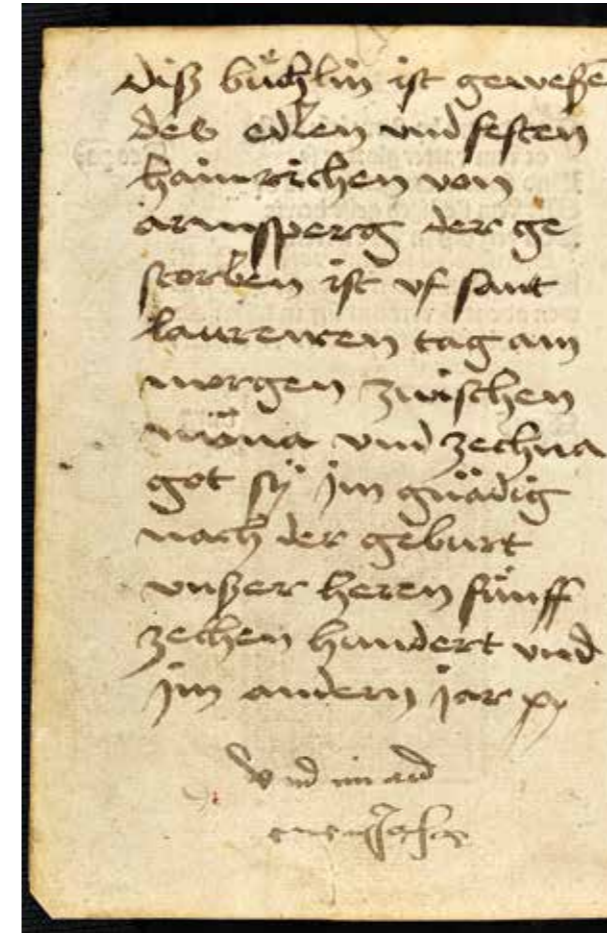 diß büchlin ist geweßen
des edlen und festen
hainrichen von
armsperg der ge
storben ist uf sant
laurencen tag am
morgen zwischen
nüna und zechna
got sÿ im gnädig
nach der geburt
unßer heren fünff
zechen hundert und
jm andern jar
und im and